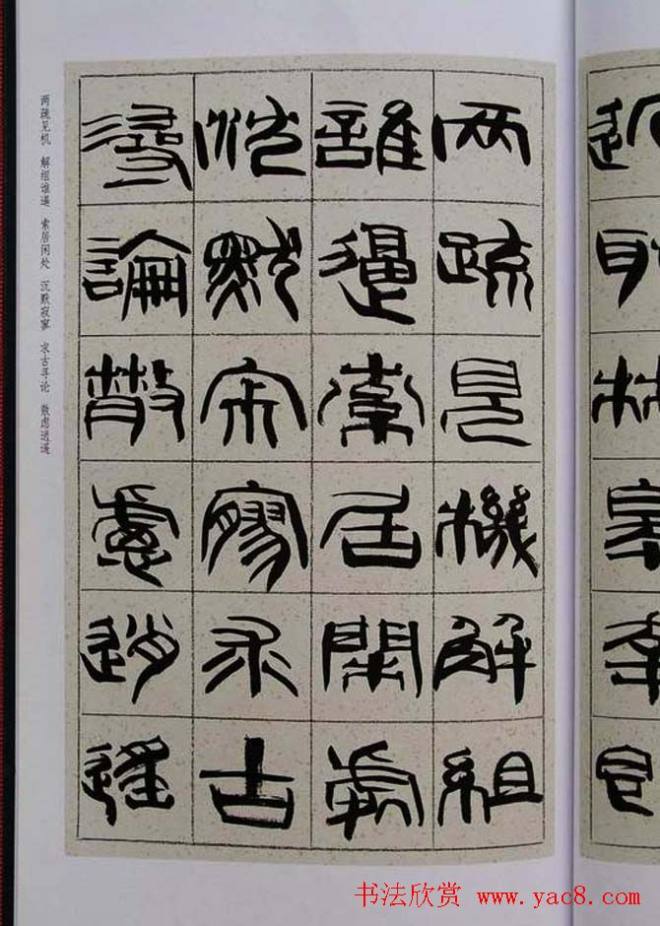 两疏見機解組
誰逼索居閒處
沈默寂寥求古
尋論散慮逍遙
两疏见机 解组谁逼 索居闲处 沉默寂寥 求古寻论 散虑逍遥
书法欣赏 www.yac8.com